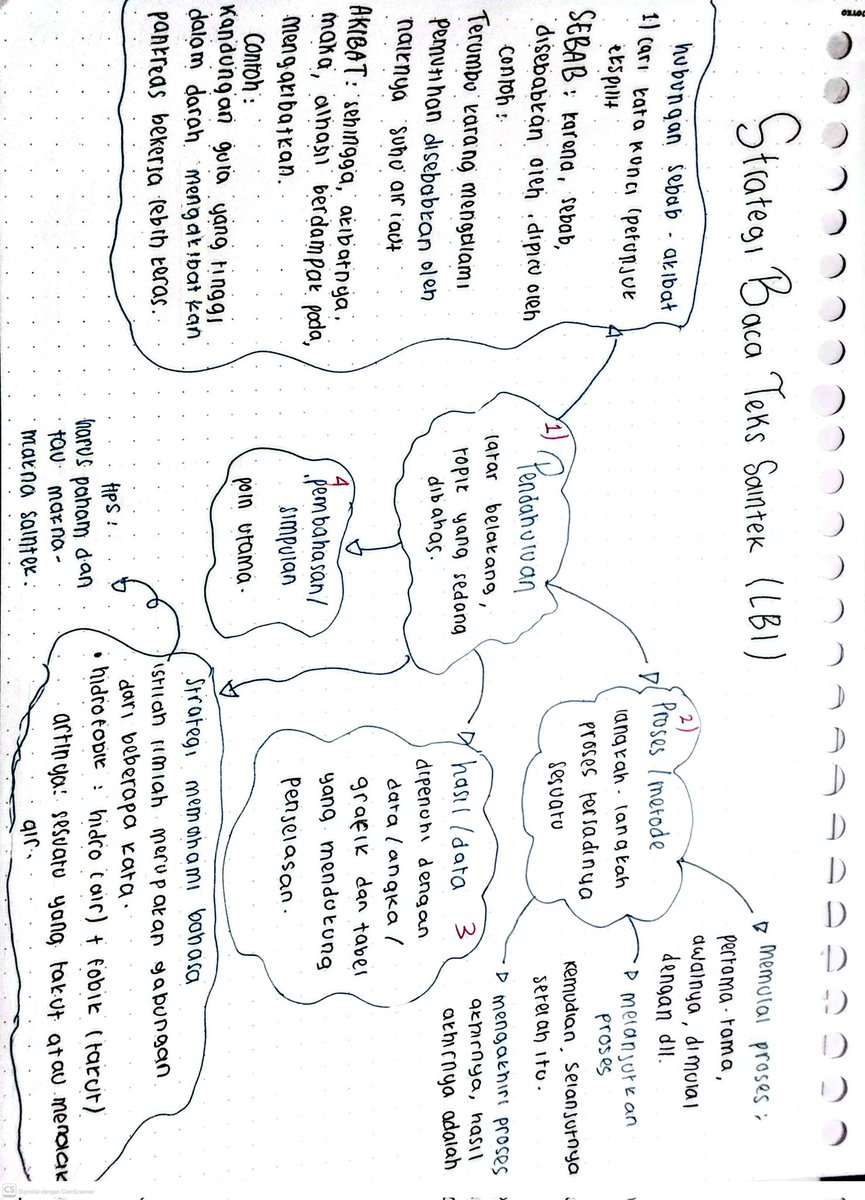 Strategi Baca Teks Saintek (LBI)
hubungan sebab - akibat
1) cari kata kunci (petunjuk
eksplit
SEBAB : karena, sebab,
disebabkan oleh, dipicu oleh
contoh :
Terumbu karang mengalami
pemutihan disebabkan oleh
naiknya suhu air laut
AKIBAT : sehingga, akibatnya,
maka, alhasil berdampak pada,
mengakibatkan.
Contoh :
Kandungan gula yang tinggi
dalam darah mengakibatkan
pankreas bekerja lebih keras.
1) Pendahuluan
latar belakang,
topik yang sedang
dibahas.
2) Proses / metode
langkah - langkah
proses terjadinya
sesuatu
memulai proses :
pertama-tama,
awalnya, dimulai
dengan dll.
melanjutkan
proses
kemudian, selanjutnya
setelah itu.
mengakhiri proses
akhirnya, hasil
akhirnya adalah
hasil / data 3
dipenuhi dengan
data / angka /
grafik dan tabel
yang mendukung
penjelasan.
4
pembahasan /
simpulan
poin utama.
Strategi memahami bahasa
istilah ilmiah merupakan gabungan
dari beberapa kata.
• hidrofobik : hidro (air) + fobik (takut)
artinya: sesuatu yang takut atau menolak
air.
tips :
harus paham dan
tau makna -
makna saintek.
CS Dipindai dengan CamScanner